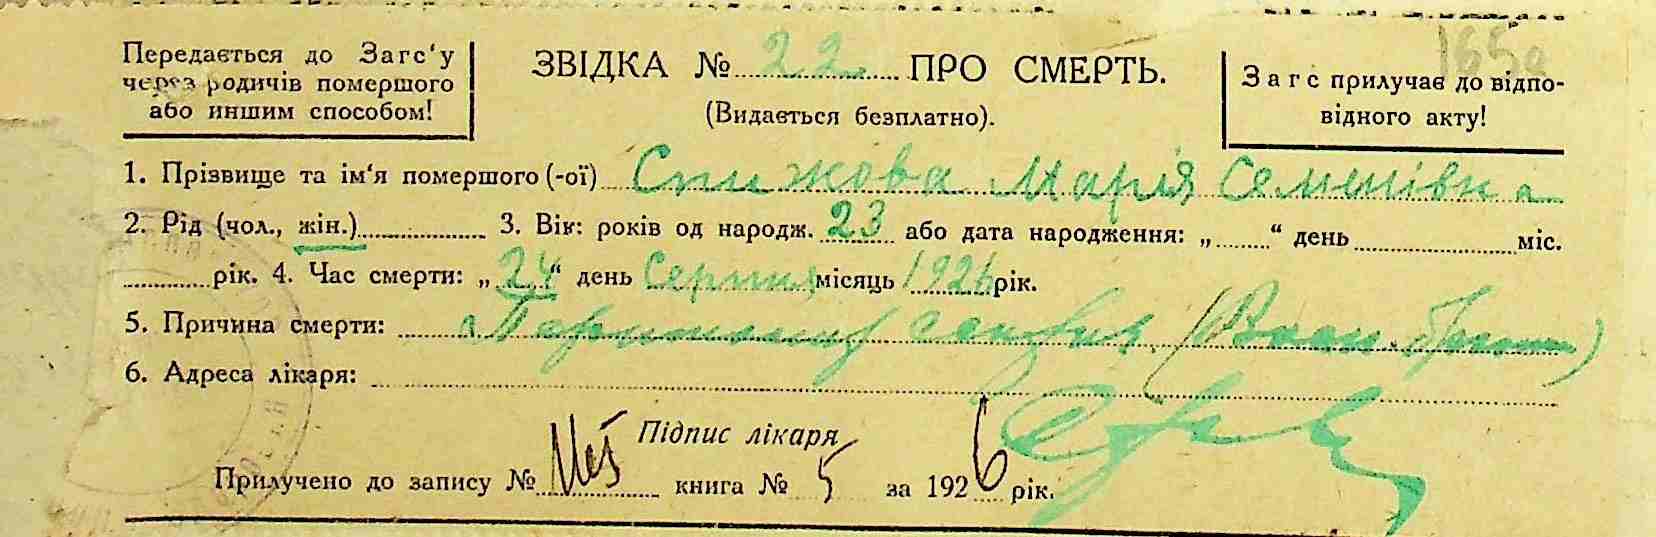 Передається до Загс‘у
через родичів помершого
або иншим способом!
ЗВІДКА № 22 ПРО СМЕРТЬ.
(Видається безплатно).
165
Загс прилучає до відпо-
відного акту!
1. Прізвище та ім‘я помершого (-ої) Стижова Марія Семенівна
2. Рід (чол., жін.) 3. Вік: років од народж. 23 або дата народження: „ “ день міс.
рік. 4. Час смерти: „24“ день Серпня місяць 1926 рік.
5. Причина смерти:
6. Адреса лікаря:
Підпис лікаря
Прилучено до запису № книга № 5 за 1926 рік.